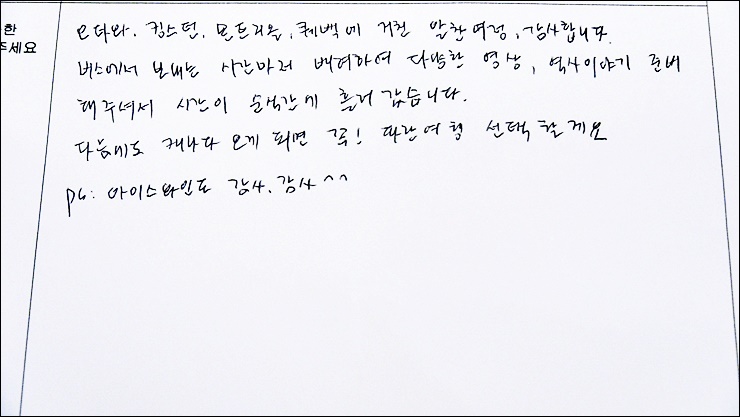 한
주세요
오타와, 킹스턴, 몬트리올, 퀘백에 거친 알찬여정, 감사합니다.
버스에서 보내는 시간마저 배려하여 다양한 영상, 역사이야기 준비
해주셔서 시간이 순식간에 흘러 갔습니다.
다음에도 캐나다 오게 되면 꼭! 파란여행 선택할게요
ps: 아이스와인도 감사, 감사 ^^